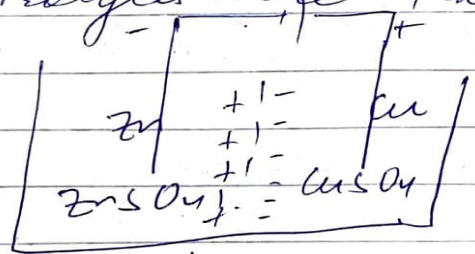 - +
Zn + | - Cu
+ | -
+ | -
ZnSO4 + - CuSO4